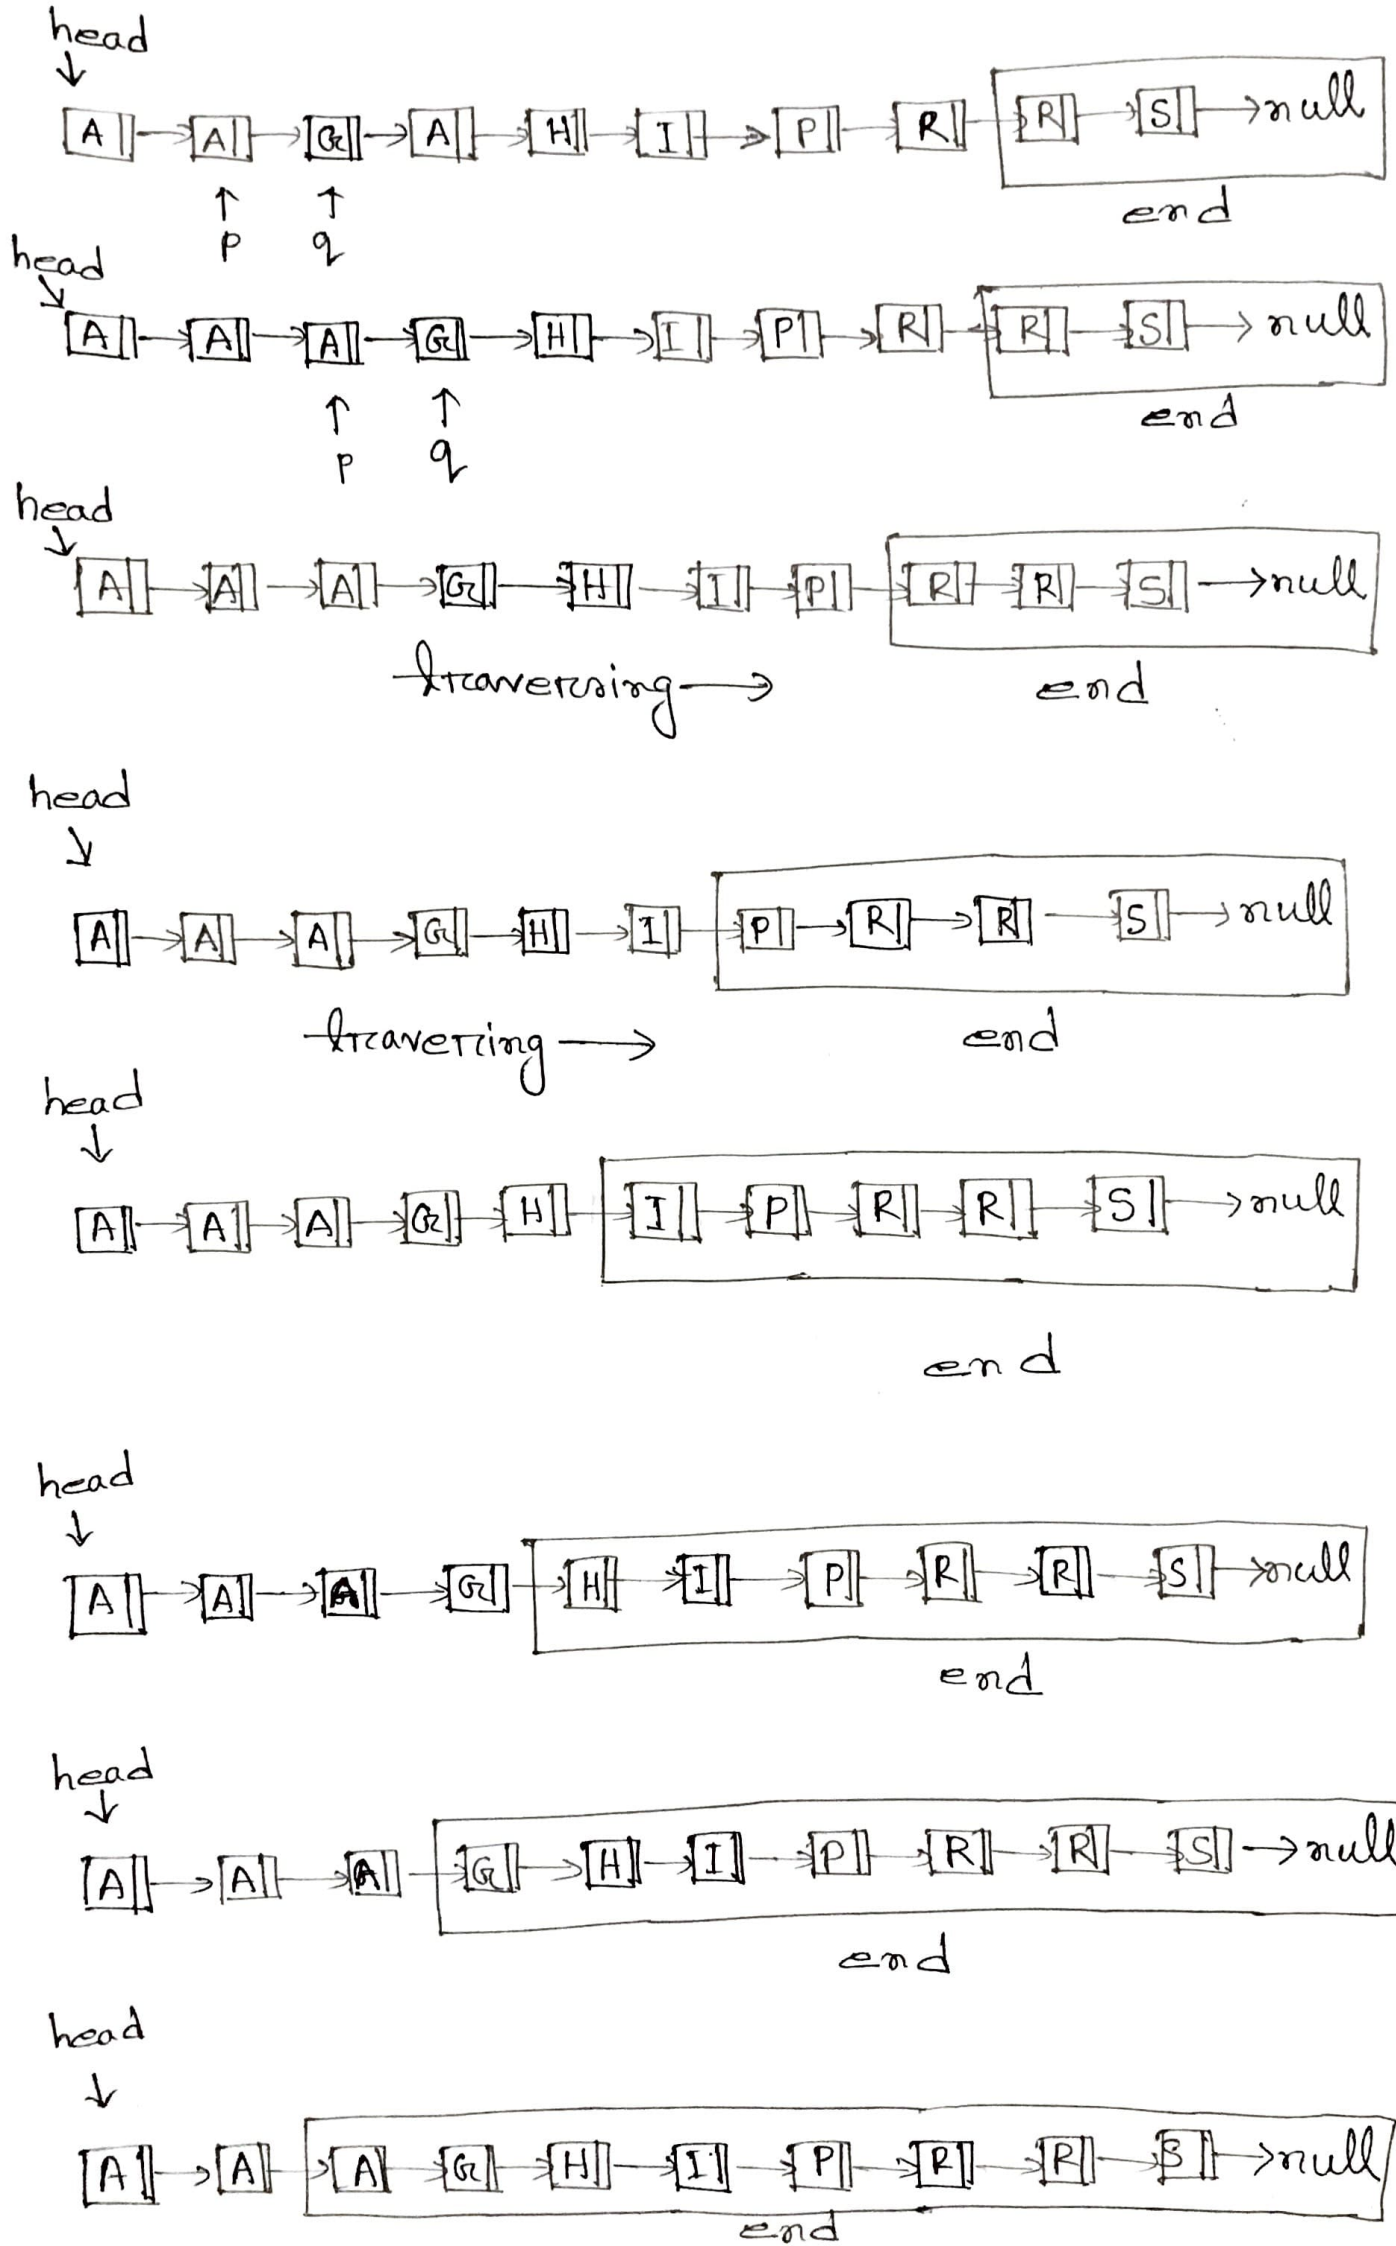 head
A A G A H I P R R S null
end
p q
head
A A A G H I P R R S null
end
p q
head
A A A G H I P R R S null
traversing end
head
A A A G H I P R R S null
travering end
head
A A A G H I P R R S null
end
head
A A A G H I P R R S null
end
head
A A A G H I P R R S null
end
head
A A A G H I P R R S null
end